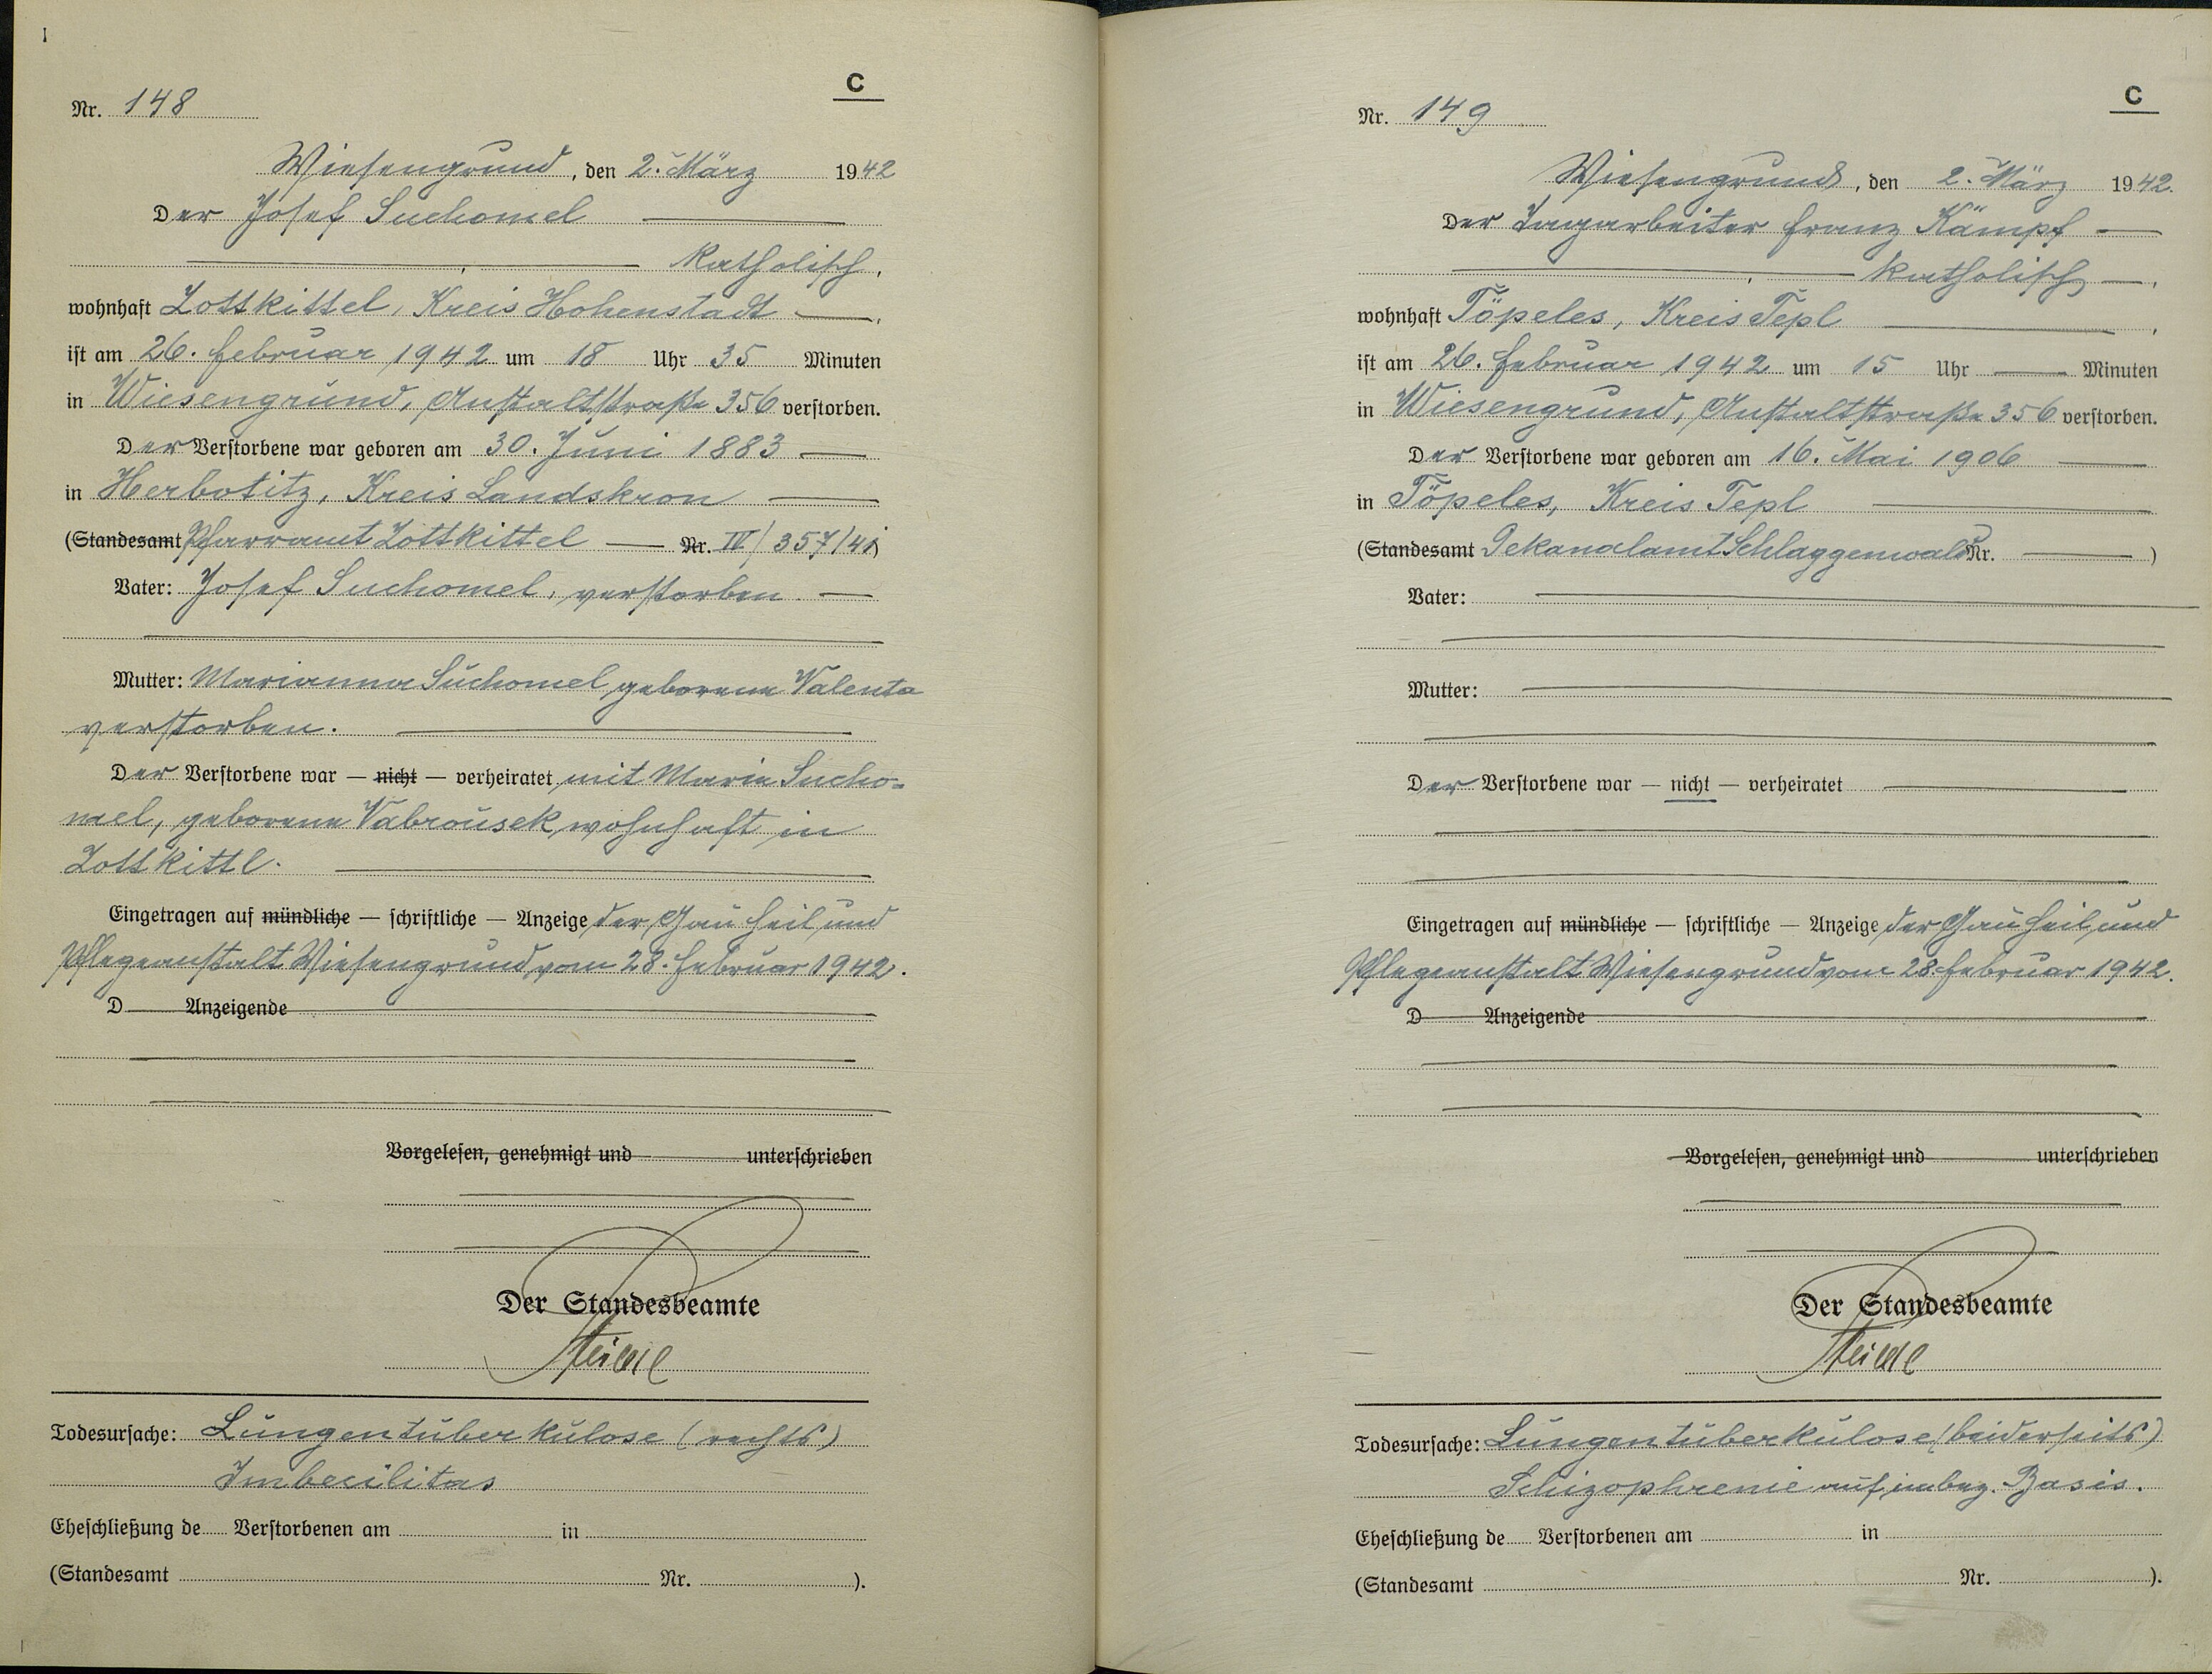 C
Nr. 148
Wiesengrund, den 2. März 1942
Der Josef Suchomel
katholisch,
wohnhaft Zottkittel, Kreis Hohenstadt,
ist am 26. Februar 1942 um 18 Uhr 35 Minuten
in Wiesengrund, Anstaltstraße 356 verstorben.
Der Verstorbene war geboren am 30. Juni 1883
in Herbotitz, Kreis Landskron
(Standesamt Pfarramt Zottkittel Nr. IV/357/41)
Vater: Josef Suchomel, verstorben.
Mutter: Marianna Suchomel geborene Valenta
verstorben.
Der Verstorbene war — nicht — verheiratet mit Marie Sucho-
mel, geborene Vabrousek, wohnhaft in
Zottkittl.
Eingetragen auf mündliche — schriftliche — Anzeige der Gau Heil und
Pflegeanstalt Wiesengrund vom 28. Februar 1942.
D Anzeigende
Vorgelesen, genehmigt und unterschrieben
Der Standesbeamte
Todesursache: Lungentuberkulose (rechts)
Imbecilitas
Eheschließung de Verstorbenen am in
(Standesamt Nr. ).
C
Nr. 149
Wiesengrund, den 2. März 1942.
Der Tagarbeiter Franz Kämpf
katholisch,
wohnhaft Töpeles, Kreis Tepl,
ist am 26. Februar 1942 um 15 Uhr Minuten
in Wiesengrund, Anstaltstraße 356 verstorben.
Der Verstorbene war geboren am 16. Mai 1906
in Töpeles, Kreis Tepl
(Standesamt Dekanalamt Schlaggenwald Nr. )
Vater:
Mutter:
Der Verstorbene war — nicht — verheiratet
Eingetragen auf mündliche — schriftliche — Anzeige der Gau Heil und
Pflegeanstalt Wiesengrund vom 28. Februar 1942.
D Anzeigende
Vorgelesen, genehmigt und unterschrieben
Der Standesbeamte
Todesursache: Lungentuberkulose (beiderseits)
Schizophrenie auf imbez. Basis.
Eheschließung de Verstorbenen am in
(Standesamt Nr. ).